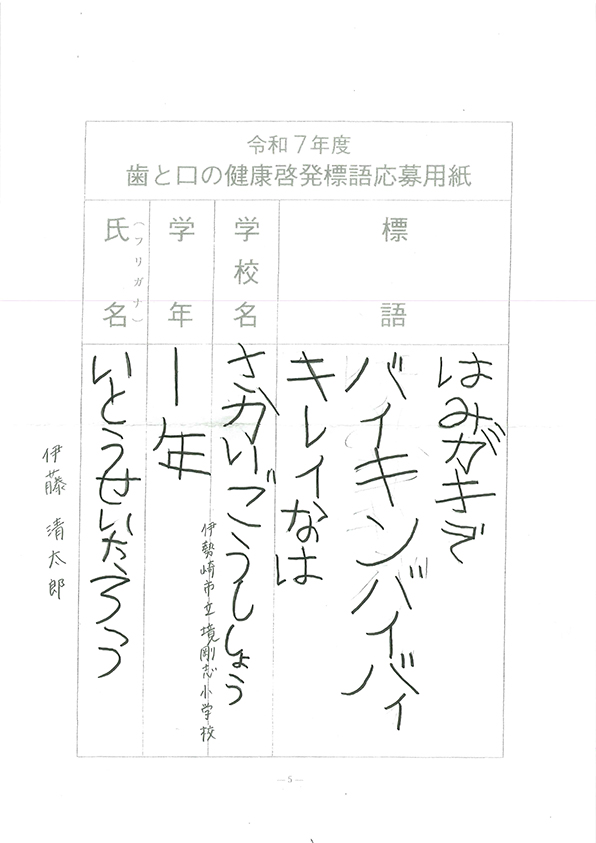 令和７年度
歯と口の健康啓発標語応募用紙
標語
はみがきで
バイキンバイバイ
キレイなは
学校名
さかいごうししょう
伊勢崎市立境剛志小学校
学年
1年
氏名
（フリガナ）
いとうせいたろう
伊藤 清太郎
―5―